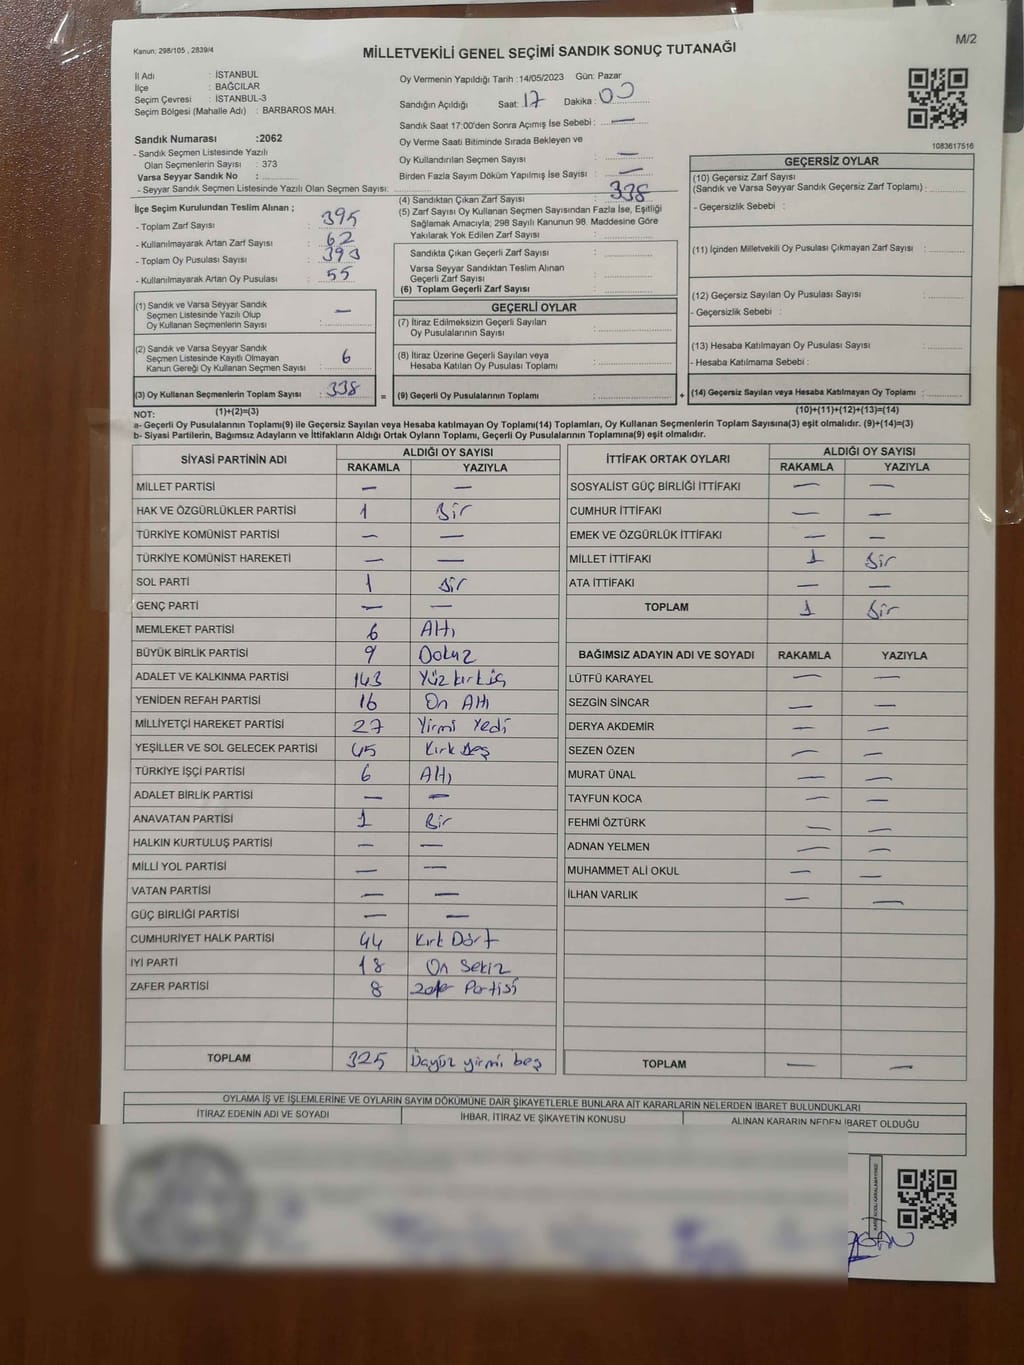 Kanun; 298/105 , 2839/4
M/2
MİLLETVEKİLİ GENEL SEÇİMİ SANDIK SONUÇ TUTANAĞI
İl Adı : İSTANBUL
İlçe : BAĞCILAR
Seçim Çevresi : İSTANBUL-3
Seçim Bölgesi (Mahalle Adı) : BARBAROS MAH.
Sandık Numarası :2062
- Sandık Seçmen Listesinde Yazılı
Olan Seçmenlerin Sayısı : 373
Varsa Seyyar Sandık No :
- Seyyar Sandık Seçmen Listesinde Yazılı Olan Seçmen Sayısı:
Oy Vermenin Yapıldığı Tarih :14/05/2023 Gün: Pazar
Sandığın Açıldığı Saat: 17 Dakika : 00
Sandık Saat 17:00'den Sonra Açımış İse Sebebi : —
Oy Verme Saati Bitiminde Sırada Bekleyen ve
Oy Kullandırılan Seçmen Sayısı : —
Birden Fazla Sayım Döküm Yapılmış İse Sayısı : —
1083617516
İlçe Seçim Kurulundan Teslim Alınan ;
- Toplam Zarf Sayısı : 395
- Kullanılmayarak Artan Zarf Sayısı : 62
- Toplam Oy Pusulası Sayısı : 393
- Kullanılmayarak Artan Oy Pusulası : 55
(1) Sandık ve Varsa Seyyar Sandık
Seçmen Listesinde Yazılı Olup
Oy Kullanan Seçmenlerin Sayısı : —
(2) Sandık ve Varsa Seyyar Sandık
Seçmen Listesinde Kayıtlı Olmayan
Kanun Gereği Oy Kullanan Seçmen Sayısı : 6
(3) Oy Kullanan Seçmenlerin Toplam Sayısı : 338
(1)+(2)=(3)
(4) Sandıktan Çıkan Zarf Sayısı : 338
(5) Zarf Sayısı Oy Kullanan Seçmen Sayısından Fazla İse, Eşitliği
Sağlamak Amacıyla; 298 Sayılı Kanunun 98. Maddesine Göre
Yakılarak Yok Edilen Zarf Sayısı :
Sandıkta Çıkan Geçerli Zarf Sayısı :
Varsa Seyyar Sandıktan Teslim Alınan
Geçerli Zarf Sayısı :
(6) Toplam Geçerli Zarf Sayısı :
GEÇERLİ OYLAR
(7) İtiraz Edilmeksizin Geçerli Sayılan
Oy Pusulalarının Sayısı :
(8) İtiraz Üzerine Geçerli Sayılan veya
Hesaba Katılan Oy Pusulası Toplamı :
= (9) Geçerli Oy Pusulalarının Toplamı : +
GEÇERSİZ OYLAR
(10) Geçersiz Zarf Sayısı
(Sandık ve Varsa Seyyar Sandık Geçersiz Zarf Toplamı) :
- Geçersizlik Sebebi :
(11) İçinden Milletvekili Oy Pusulası Çıkmayan Zarf Sayısı :
(12) Geçersiz Sayılan Oy Pusulası Sayısı :
- Geçersizlik Sebebi :
(13) Hesaba Katılmayan Oy Pusulası Sayısı :
- Hesaba Katılmama Sebebi :
(14) Geçersiz Sayılan veya Hesaba Katılmayan Oy Toplamı :
(10)+(11)+(12)+(13)=(14)
NOT:
a- Geçerli Oy Pusulalarının Toplamı(9) ile Geçersiz Sayılan veya Hesaba katılmayan Oy Toplamı(14) Toplamları, Oy Kullanan Seçmenlerin Toplam Sayısına(3) eşit olmalıdır. (9)+(14)=(3)
b- Siyasi Partilerin, Bağımsız Adayların ve İttifakların Aldığı Ortak Oyların Toplamı, Geçerli Oy Pusulalarının Toplamına(9) eşit olmalıdır.
SİYASİ PARTİNİN ADI ALDIĞI OY SAYISI
RAKAMLA YAZIYLA
MİLLET PARTİSİ — —
HAK VE ÖZGÜRLÜKLER PARTİSİ 1 Bir
TÜRKİYE KOMÜNİST PARTİSİ — —
TÜRKİYE KOMÜNİST HAREKETİ — —
SOL PARTİ 1 Bir
GENÇ PARTİ — —
MEMLEKET PARTİSİ 6 Altı
BÜYÜK BİRLİK PARTİSİ 9 Dokuz
ADALET VE KALKINMA PARTİSİ 143 Yüz kırk üç
YENİDEN REFAH PARTİSİ 16 On Altı
MİLLİYETÇİ HAREKET PARTİSİ 27 Yirmi Yedi
YEŞİLLER VE SOL GELECEK PARTİSİ 45 Kırk Beş
TÜRKİYE İŞÇİ PARTİSİ 6 Altı
ADALET BİRLİK PARTİSİ — —
ANAVATAN PARTİSİ 1 Bir
HALKIN KURTULUŞ PARTİSİ — —
MİLLİ YOL PARTİSİ — —
VATAN PARTİSİ — —
GÜÇ BİRLİĞİ PARTİSİ — —
CUMHURİYET HALK PARTİSİ 44 Kırk Dört
İYİ PARTİ 18 On Sekiz
ZAFER PARTİSİ 8 Zafer Partisi
TOPLAM 325 Üçyüz yirmi beş
İTTİFAK ORTAK OYLARI ALDIĞI OY SAYISI
RAKAMLA YAZIYLA
SOSYALİST GÜÇ BİRLİĞİ İTTİFAKI — —
CUMHUR İTTİFAKI — —
EMEK VE ÖZGÜRLÜK İTTİFAKI — —
MİLLET İTTİFAKI 1 Bir
ATA İTTİFAKI — —
TOPLAM 1 Bir
BAĞIMSIZ ADAYIN ADI VE SOYADI RAKAMLA YAZIYLA
LÜTFÜ KARAYEL — —
SEZGİN SİNCAR — —
DERYA AKDEMİR — —
SEZEN ÖZEN — —
MURAT ÜNAL — —
TAYFUN KOCA — —
FEHMİ ÖZTÜRK — —
ADNAN YELMEN — —
MUHAMMET ALİ OKUL — —
İLHAN VARLIK — —
TOPLAM — —
OYLAMA İŞ VE İŞLEMLERİNE VE OYLARIN SAYIM DÖKÜMÜNE DAİR ŞİKAYETLERLE BUNLARA AİT KARARLARIN NELERDEN İBARET BULUNDUKLARI
İTİRAZ EDENİN ADI VE SOYADI İHBAR, İTİRAZ VE ŞİKAYETİN KONUSU ALINAN KARARIN NEDEN İBARET OLDUĞU